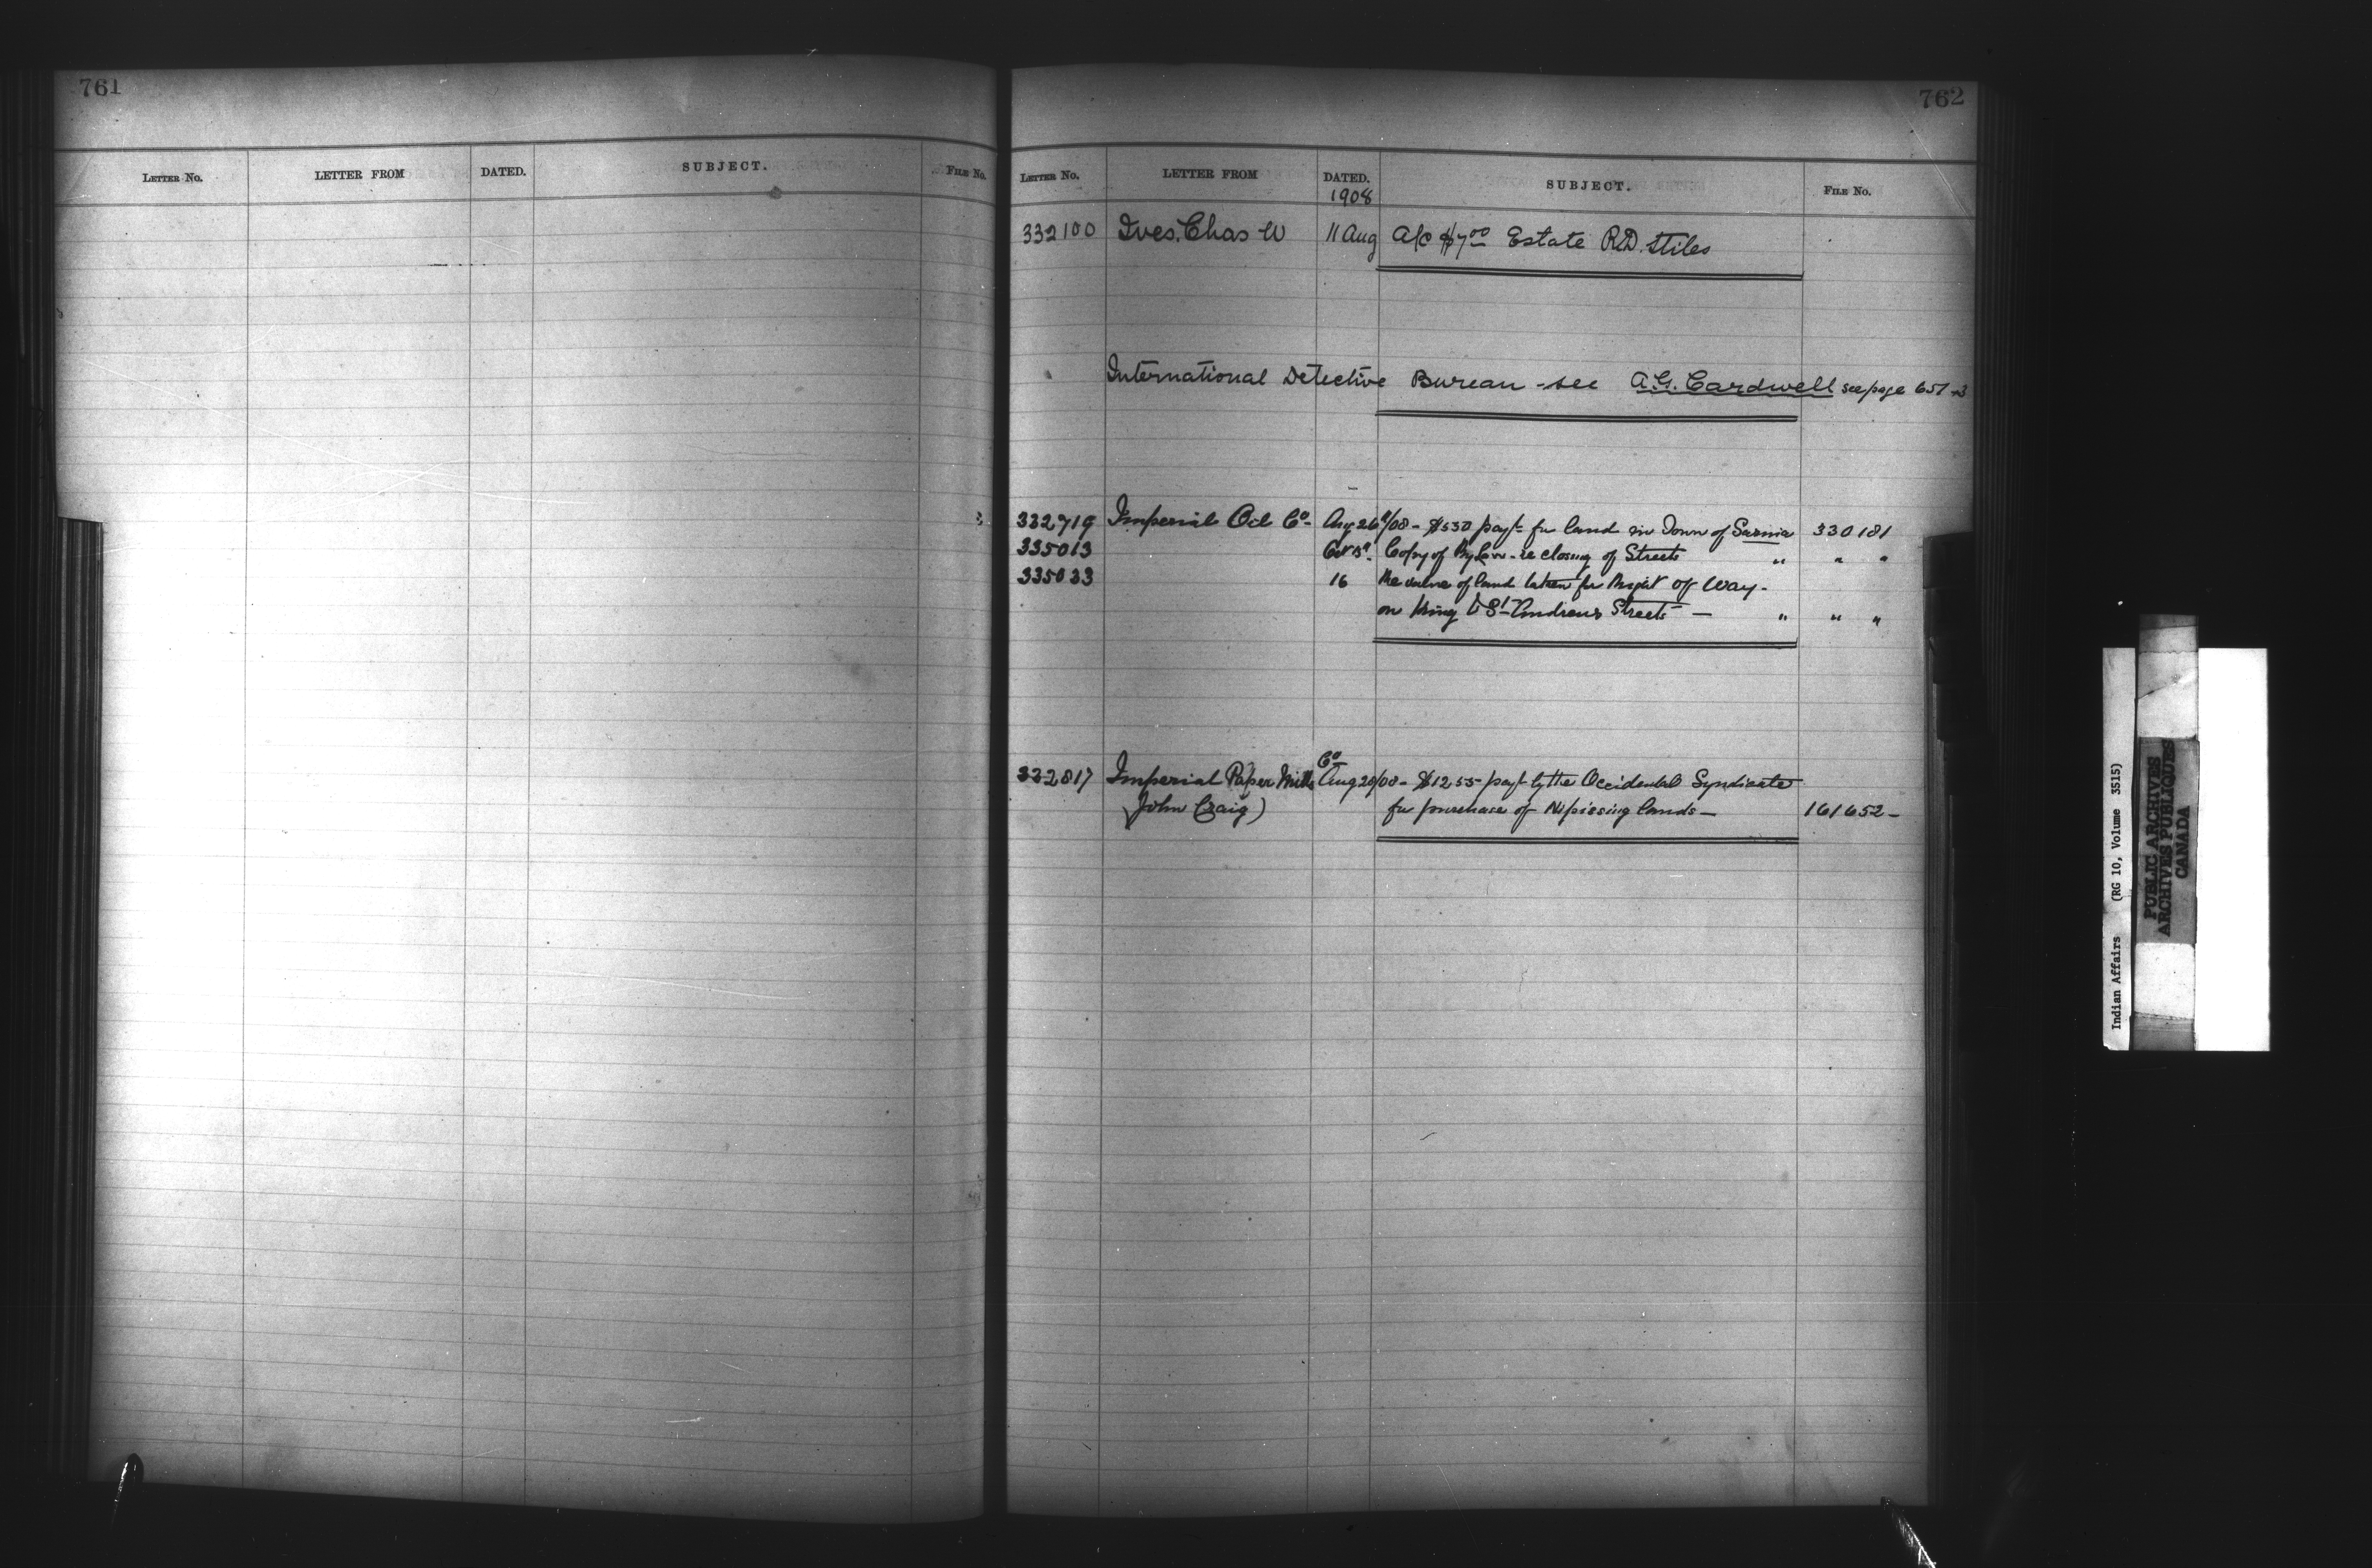 761
LETTER NO. LETTER FROM DATED. SUBJECT. FILE NO.
762
LETTER NO. LETTER FROM DATED. SUBJECT. FILE NO.
1908
332100 Ives. Chas W 11 Aug A/c $7.00 Estate R.D. Stiles
International Detective Bureau - see A.G. Cardwell see page 657
332719 Imperial Oil Co Aug 26/08 - $530 payt for land in Town of Sarnia 330181
335013 Oct 15 Copy of By Law - re closing of Streets " " "
335033 16 Re value of land taken for Right of Way -
on King & St Andrews Streets - " " "
332817 Imperial Paper Mills Co Aug 28/08 - $1255 payt by the Occidental Syndicate
(John Craig) for purchase of Nipissing lands - 161652 -
Indian Affairs (RG 10, Volume 3515)
PUBLIC ARCHIVES
ARCHIVES PUBLIQUES
CANADA